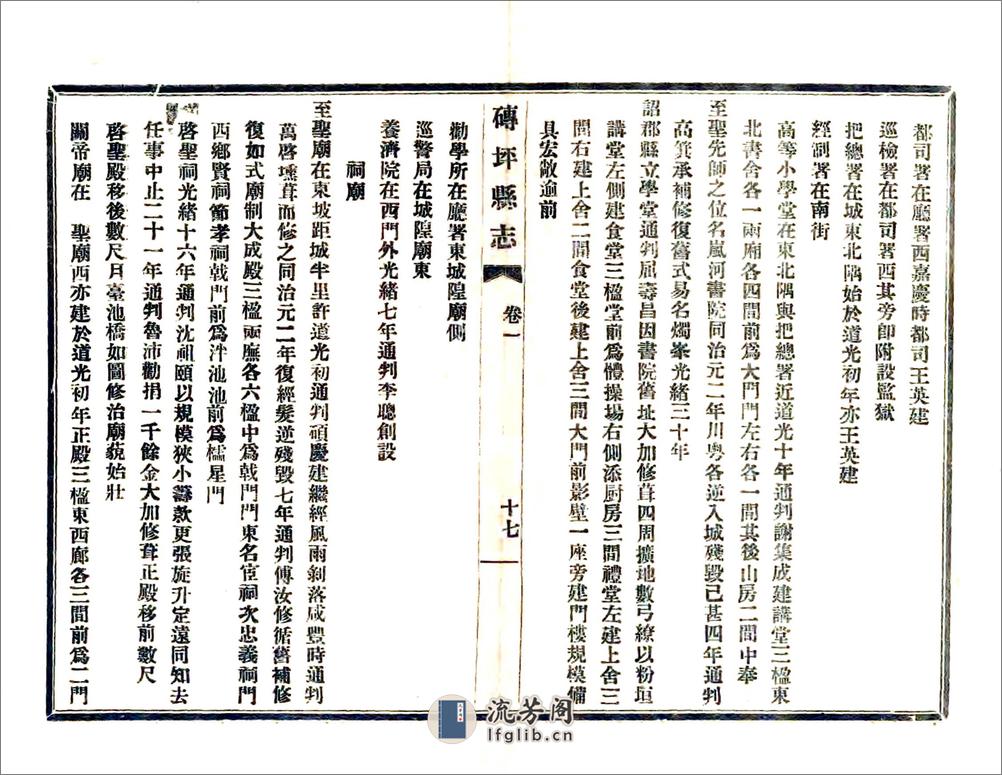 都司署在廳署西嘉慶時都司王英建
巡檢署在都司署西其旁卽附設監獄
把總署在城東北隅始於道光初年亦王英建
經制署在南街
高等小學堂在東北隅與把總署近道光十年通判謝集成建講堂三楹東
北書舍各一兩廂各四間前爲大門門左右各一間其後山房二間中奉
至聖先師之位名嵐河書院同治元二年川粤各逆入城殘毀已甚四年通判
高箕承補修復舊式易名燭峯光緒三十年
詔郡縣立學堂通判屈壽昌因書院舊址大加修葺四周擴地數弓繚以粉垣
講堂左側建食堂三楹堂前爲體操場右側添厨房三間禮堂左建上舍三
間右建上舍二間食堂後建上舍三間大門前影壁一座旁建門樓規模備
具宏敞逾前
磚坪縣志
卷一
十七
勸學所在廳署東城隍廟側
巡警局在城隍廟東
養濟院在西門外光緒七年通判李聰創設
祠廟
至聖廟在東坡距城半里許道光初通判碩慶建繼經風雨剝落咸豐時通判
萬啓壎葺而修之同治元二年復經髮逆殘毀七年通判傅汝修循舊補修
復如式廟制大成殿三楹兩廡各六楹中爲戟門門東名宦祠次忠義祠門
西鄉賢祠節孝祠戟門前爲泮池池前爲櫺星門
啓聖祠光緒十六年通判沈祖頤以規模狹小籌款更張旋升定遠同知去
任事中止二十一年通判魯沛勸捐一千餘金大加修葺正殿移前數尺
啓聖殿移後數尺月臺池橋如圖修治廟藐始壯
關帝廟在 聖廟西亦建於道光初年正殿三楹東西廊各三間前爲二門
流芳阁
lfglib.cn